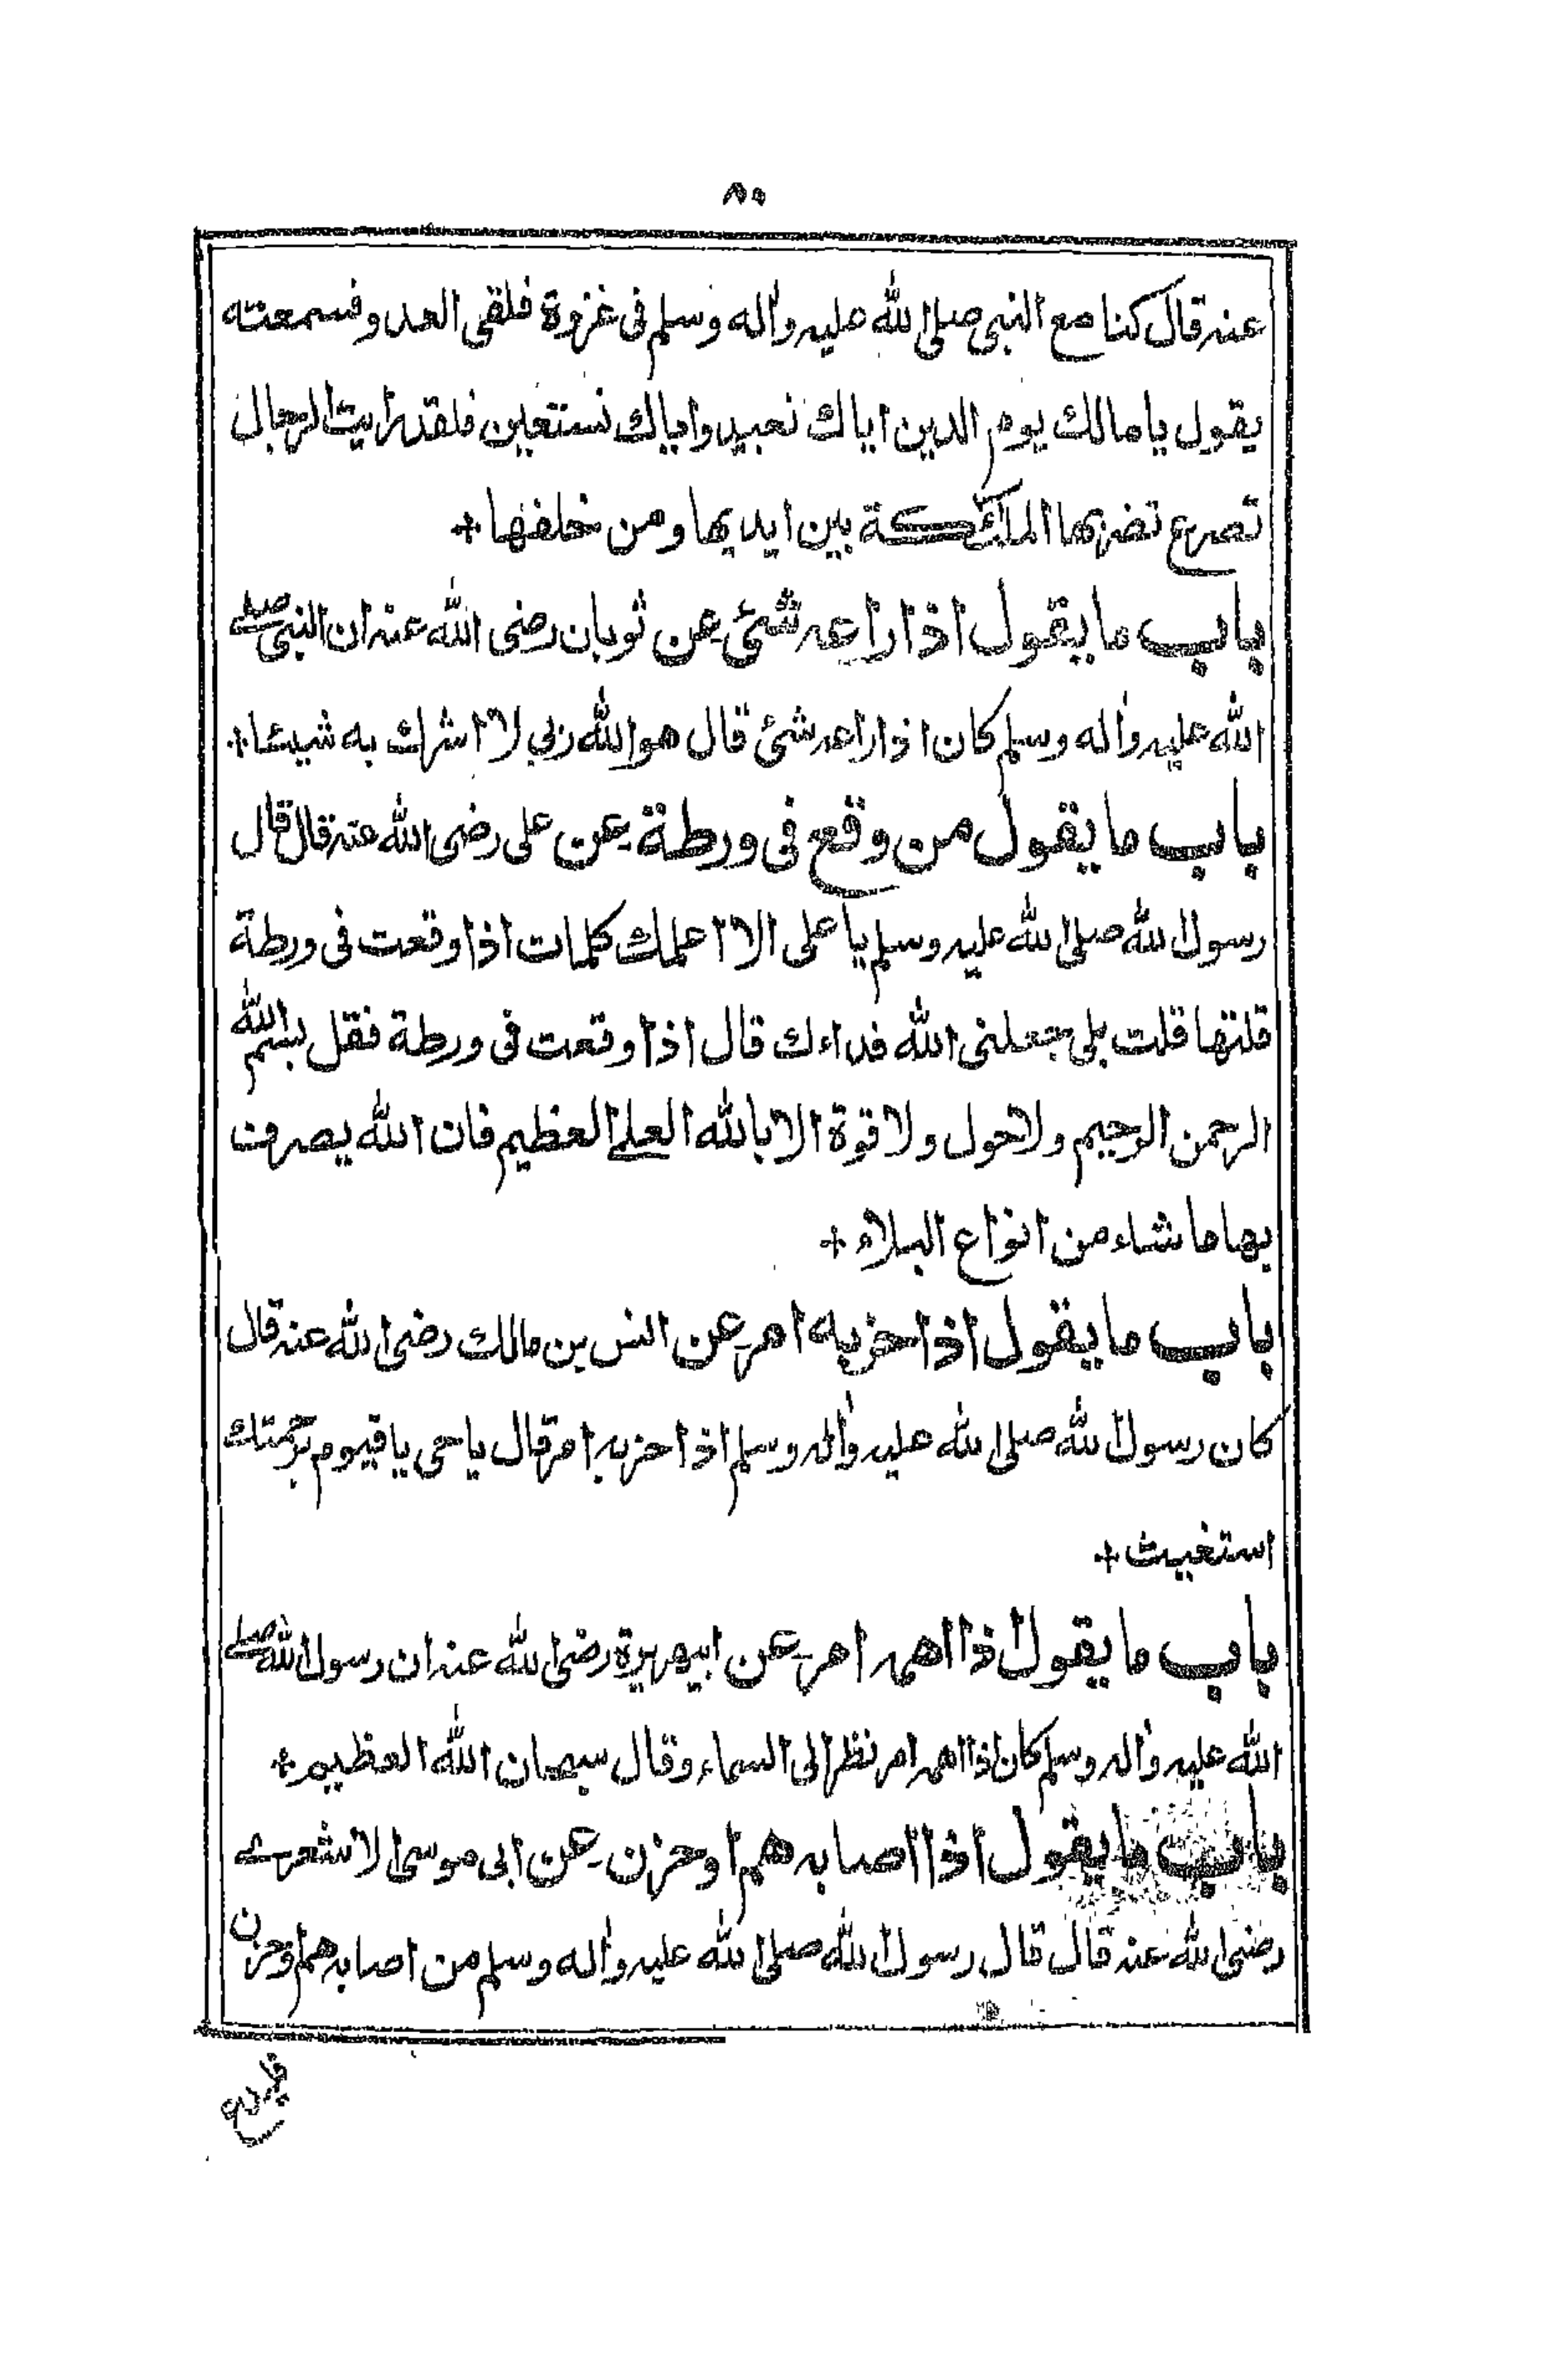 ٨٥
عنه قال كنا مع النبى صلى الله عليه واله وسلم فى غزوة فلقى العدو فسمعته
يقول يا مالك يوم الدين اياك نعبد واياك نستعين فلقد رايت الرجال
تصرع تضربها الملئكة بين ايديها ومن خلفها +
باب ما يقول اذا راعه شئ عن ثوبان رضى الله عنه ان النبى صلے
الله عليه واله وسلم كان اذا راعه شئ قال هو الله ربى لا اشرك به شيئا +
باب ما يقول من وقع فى ورطة عن على رضى الله عنه قال قال
رسول الله صلى الله عليه وسلم يا على الا اعلمك كلمات اذا وقعت فى ورطة
قلتها قلت بلى جعلنى الله فداءك قال اذا وقعت فى ورطة فقل بسم الله
الرحمن الرحيم ولا حول ولا قوة الا بالله العلے العظيم فان الله يصرف
بها ما شاء من انواع البلاء +
باب ما يقول اذا حزبه امر عن انس بن مالك رضى الله عنه قال
كان رسول الله صلى الله عليه واله وسلم اذا حزبه امر قال يا حى يا قيوم برحمتك
استغيث +
باب ما يقول اذا اهمه امر عن ابيهريرة رضى الله عنه ان رسول الله صلے
الله عليه واله وسلم كان اذا اهمه امر نظر الى السماء وقال سبحان الله العظيم +
باب ما يقول اذا اصابه هم او حزن عن ابى موسى الاشعرے
رضى الله عنه قال قال رسول الله صلى الله عليه واله وسلم من اصابه هم او حزن